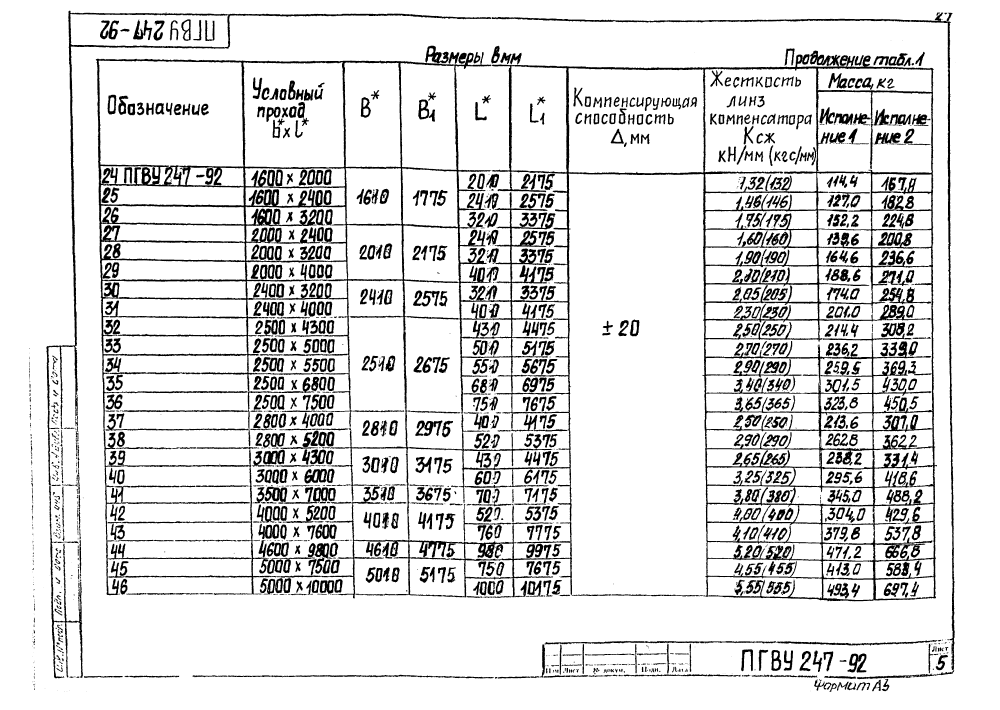 27
ПГВУ 247-92
Размеры в мм
Продолжение табл.1
Обозначение | Условный проход b*x l* | B* | B1* | L* | L1* | Компенсирующая способность Δ, мм | Жесткость линз компенсатора Ксж кН/мм (кгс/мм) | Масса, кг Исполнение 1 | Исполнение 2
24 ПГВУ 247-92 | 1600 x 2000 | 1610 | 1775 | 2010 | 2175 | ± 20 | 1,32(132) | 114,4 | 167,8
25 | 1600 x 2400 | 2410 | 2575 | 1,46(146) | 127,0 | 182,8
26 | 1600 x 3200 | 3210 | 3375 | 1,75(175) | 152,2 | 224,8
27 | 2000 x 2400 | 2010 | 2175 | 2410 | 2575 | 1,60(160) | 139,6 | 200,8
28 | 2000 x 3200 | 3210 | 3375 | 1,90(190) | 164,6 | 236,6
29 | 2000 x 4000 | 4010 | 4175 | 2,10(210) | 188,6 | 271,0
30 | 2400 x 3200 | 2410 | 2575 | 3210 | 3375 | 2,05(205) | 174,0 | 254,8
31 | 2400 x 4000 | 4010 | 4175 | 2,30(230) | 201,0 | 289,0
32 | 2500 x 4300 | 2510 | 2675 | 4310 | 4475 | 2,50(250) | 214,4 | 308,2
33 | 2500 x 5000 | 5010 | 5175 | 2,70(270) | 236,2 | 339,0
34 | 2500 x 5500 | 5510 | 5675 | 2,90(290) | 259,6 | 369,3
35 | 2500 x 6800 | 6810 | 6975 | 3,40(340) | 301,5 | 430,0
36 | 2500 x 7500 | 7510 | 7675 | 3,65(365) | 323,8 | 450,5
37 | 2800 x 4000 | 2810 | 2975 | 4010 | 4175 | 2,50(250) | 213,6 | 307,0
38 | 2800 x 5200 | 5210 | 5375 | 2,90(290) | 262,8 | 362,2
39 | 3000 x 4300 | 3010 | 3175 | 4310 | 4475 | 2,65(265) | 238,2 | 331,4
40 | 3000 x 6000 | 6010 | 6175 | 3,25(325) | 295,6 | 418,6
41 | 3500 x 7000 | 3510 | 3675 | 7010 | 7175 | 3,80(380) | 345,0 | 488,2
42 | 4000 x 5200 | 4010 | 4175 | 5210 | 5375 | 4,00(400) | 304,0 | 429,6
43 | 4000 x 7600 | 7610 | 7775 | 4,10(410) | 379,8 | 537,8
44 | 4600 x 9800 | 4610 | 4775 | 9810 | 9975 | 5,20(520) | 471,2 | 666,8
45 | 5000 x 7500 | 5010 | 5175 | 7510 | 7675 | 4,55(455) | 413,0 | 588,4
46 | 5000 x 10000 | 10010 | 10175 | 5,55(555) | 493,4 | 697,4
Изм Лист № докум. Подп. Дата
ПГВУ 247-92
Лист
5
Формат А3